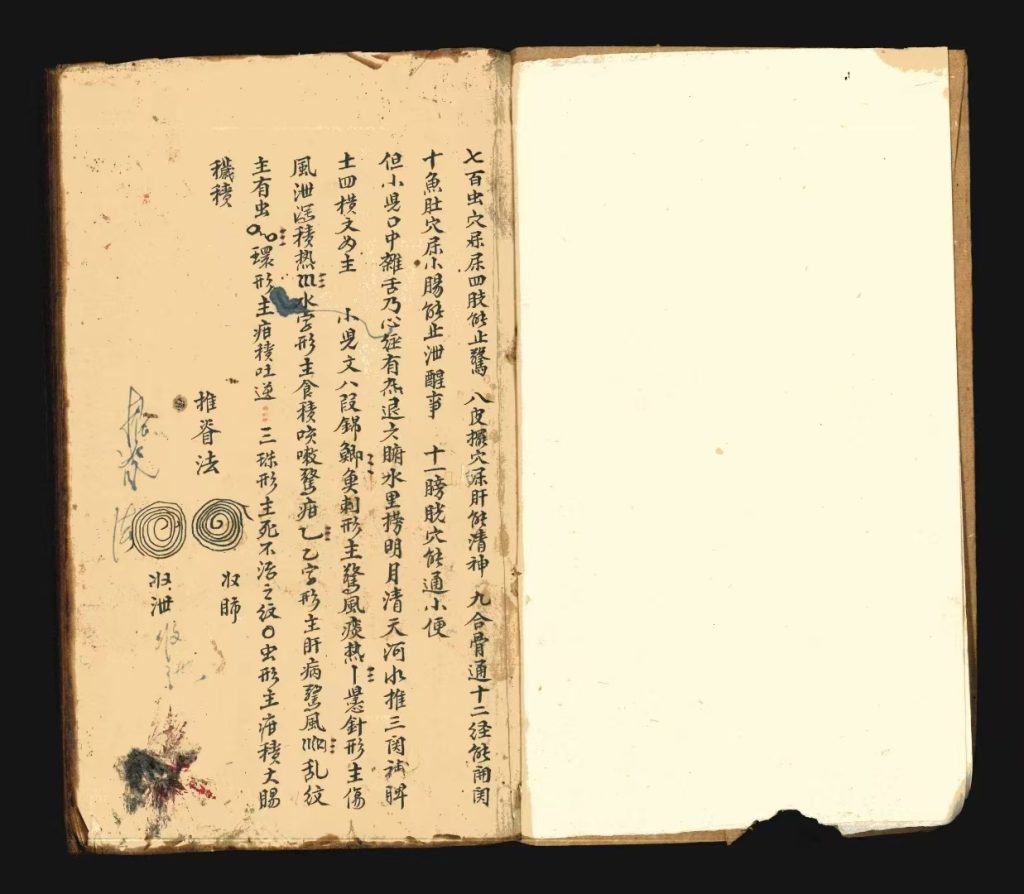 七百虫穴尿尿四肢能止驚 八皮撮穴尿肝能清神 九合骨通十二经能甬関
十魚肚穴尿小腸能止泄醒事 十一膀胱穴能通小便
但小児口中雜舌乃心经有熱退六腑水里捞明月清天河水推三関補脾
土四横文为主 小児文八段錦鯽魚刺形主驚風痰热丨懸針形主傷
風泄瀉積热水字形主食積咳嗽驚疳乙乙字形主肝病驚風乱纹
主有虫環形主疳積吐逆 三珠形主死不治之纹〇虫形主疳積大腸
穢積
推脊法
収肺
収泄